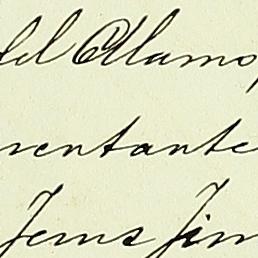 del Alamo,
sentante
Jems Jim